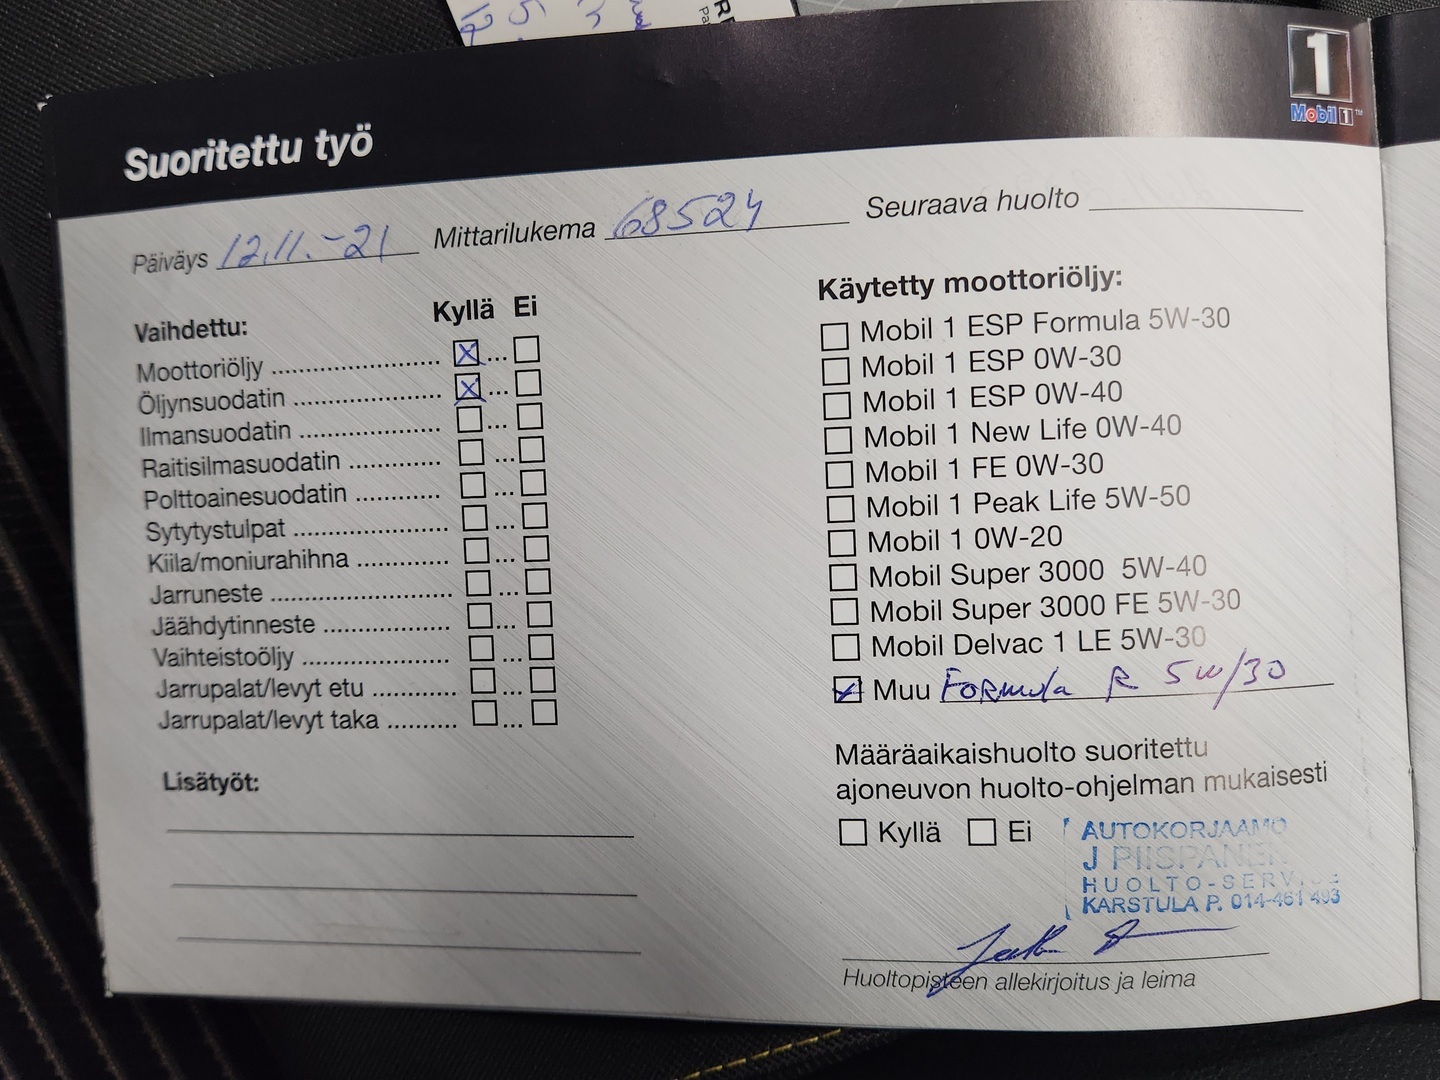 1
Mobil 1
Suoritettu työ
Päiväys 12.11.-21 Mittarilukema 68524 Seuraava huolto
Vaihdettu: Kyllä Ei
Moottoriöljy
Öljynsuodatin
Ilmansuodatin
Raitisilmasuodatin
Polttoainesuodatin
Sytytystulpat
Kiila/moniurahihna
Jarruneste
Jäähdytinneste
Vaihteistoöljy
Jarrupalat/levyt etu
Jarrupalat/levyt taka
Lisätyöt:
Käytetty moottoriöljy:
Mobil 1 ESP Formula 5W-30
Mobil 1 ESP 0W-30
Mobil 1 ESP 0W-40
Mobil 1 New Life 0W-40
Mobil 1 FE 0W-30
Mobil 1 Peak Life 5W-50
Mobil 1 0W-20
Mobil Super 3000 5W-40
Mobil Super 3000 FE 5W-30
Mobil Delvac 1 LE 5W-30
Muu Formula R 5W/30
Määräaikaishuolto suoritettu
ajoneuvon huolto-ohjelman mukaisesti
Kyllä Ei
AUTOKORJAAMO
J PIISPANEN
HUOLTO-SERVICE
KARSTULA P. 014-461 493
Huoltopisteen allekirjoitus ja leima